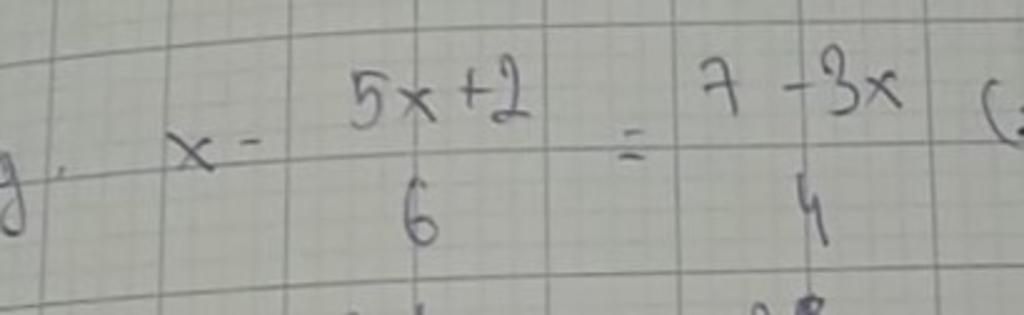 g. x - (5x + 2)/6 = (7 - 3x)/4 (